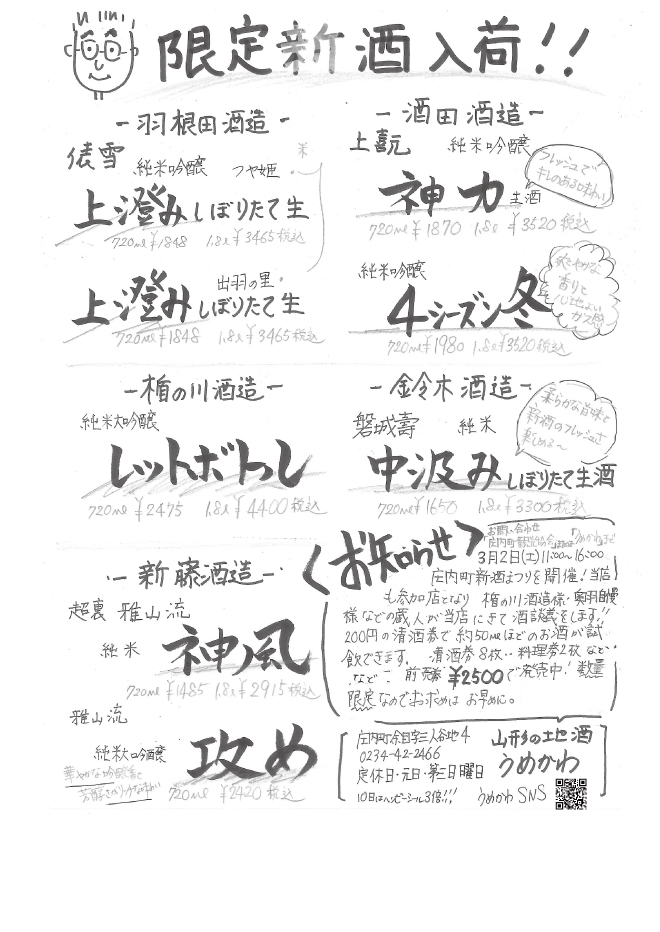 限定新酒入荷!!
-羽根田酒造-
俵雪 純米吟醸 つや姫 米
上澄みしぼりたて生
720ml¥1848 1.8l¥3465税込
出羽の里
上澄みしぼりたて生
720ml¥1848 1.8l¥3465税込
-酒田酒造-
上喜元 純米吟醸
フレッシュで
キレのある味わい
神力 生酒
720ml¥1870 1.8l¥3520税込
純米吟醸
4シーズン冬
爽やかな
香りと
心地よい
ガス感
720ml¥1980 1.8l¥3520税込
-楯の川酒造-
純米大吟醸
レットボトル
720ml¥2475 1.8l¥4400税込
-鈴木酒造-
磐城壽 純米
柔らかな旨味と
新酒のフレッシュさ
楽しめる〜
中汲みしぼりたて生酒
720ml¥1650 1.8l¥3300税込
-新藤酒造-
超裏 雅山流
純米 神風
720ml¥1485 1.8l¥2915税込
雅山流
純米大吟醸 攻め
華やかな吟醸香と
720ml¥2420税込
<お知らせ>
お問い合わせ
3月2日(土)11:00〜16:00
庄内町新酒まつりを開催!当店
も参加店となり 楯の川酒造様・奥羽自慢
様などの蔵人が当店にきて酒談義をします!!
200円の清酒券で約50mlほどのお酒が試
飲できます。 清酒券8枚・料理券2枚など
など 前売券¥2500で発売中!数量
限定なのでお求めはお早めに。
庄内町余目字三人谷地4
0234-42-2466
定休日・元日・第三日曜日
10日はハッピーシール3倍!!!
山形の地酒
うめかわ
うめかわSNS